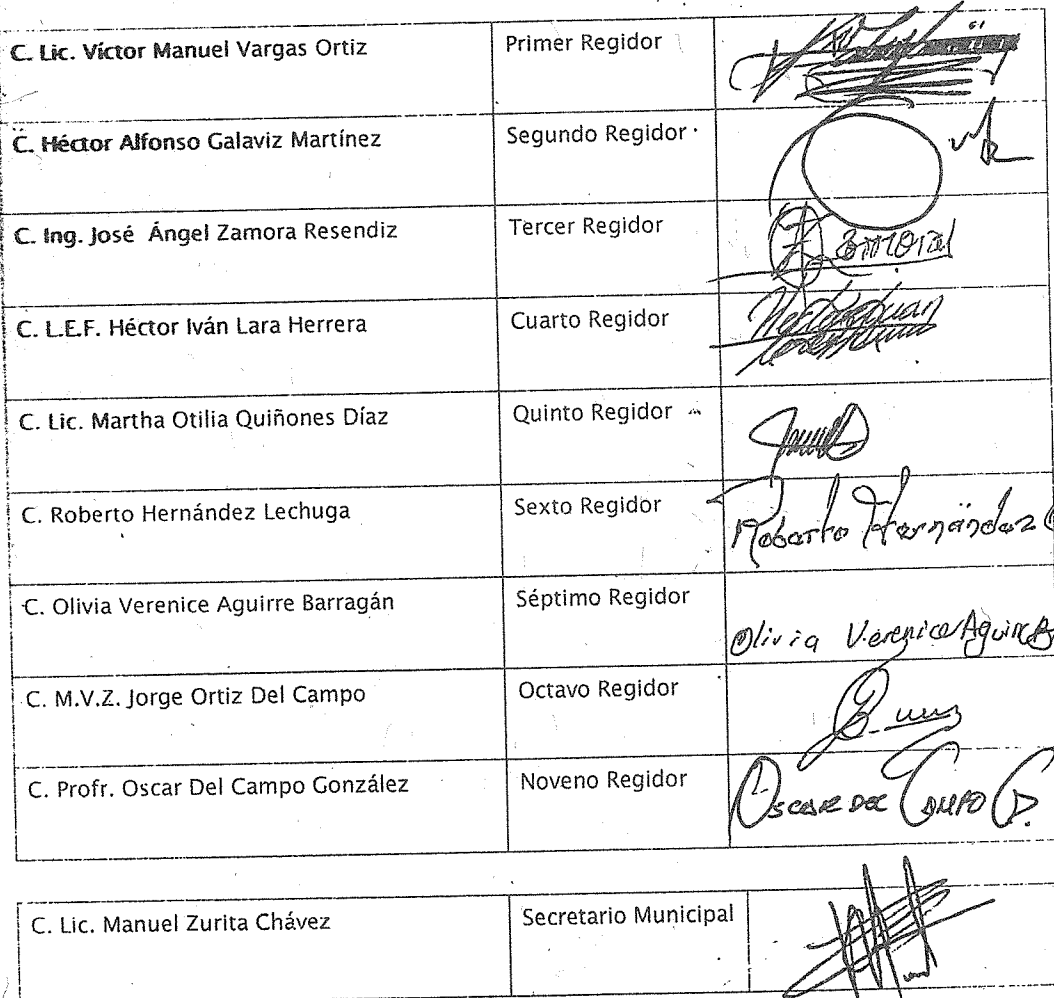 C. Lic. Víctor Manuel Vargas Ortiz Primer Regidor
C. Héctor Alfonso Galaviz Martínez Segundo Regidor
C. Ing. José Ángel Zamora Resendiz Tercer Regidor
C. L.E.F. Héctor Iván Lara Herrera Cuarto Regidor
C. Lic. Martha Otilia Quiñones Díaz Quinto Regidor
C. Roberto Hernández Lechuga Sexto Regidor Roberto Hernández
C. Olivia Verenice Aguirre Barragán Séptimo Regidor Olivia Verenice Aguirre B
C. M.V.Z. Jorge Ortiz Del Campo Octavo Regidor
C. Profr. Oscar Del Campo González Noveno Regidor OSCAR DEL CAMPO G.
C. Lic. Manuel Zurita Chávez Secretario Municipal